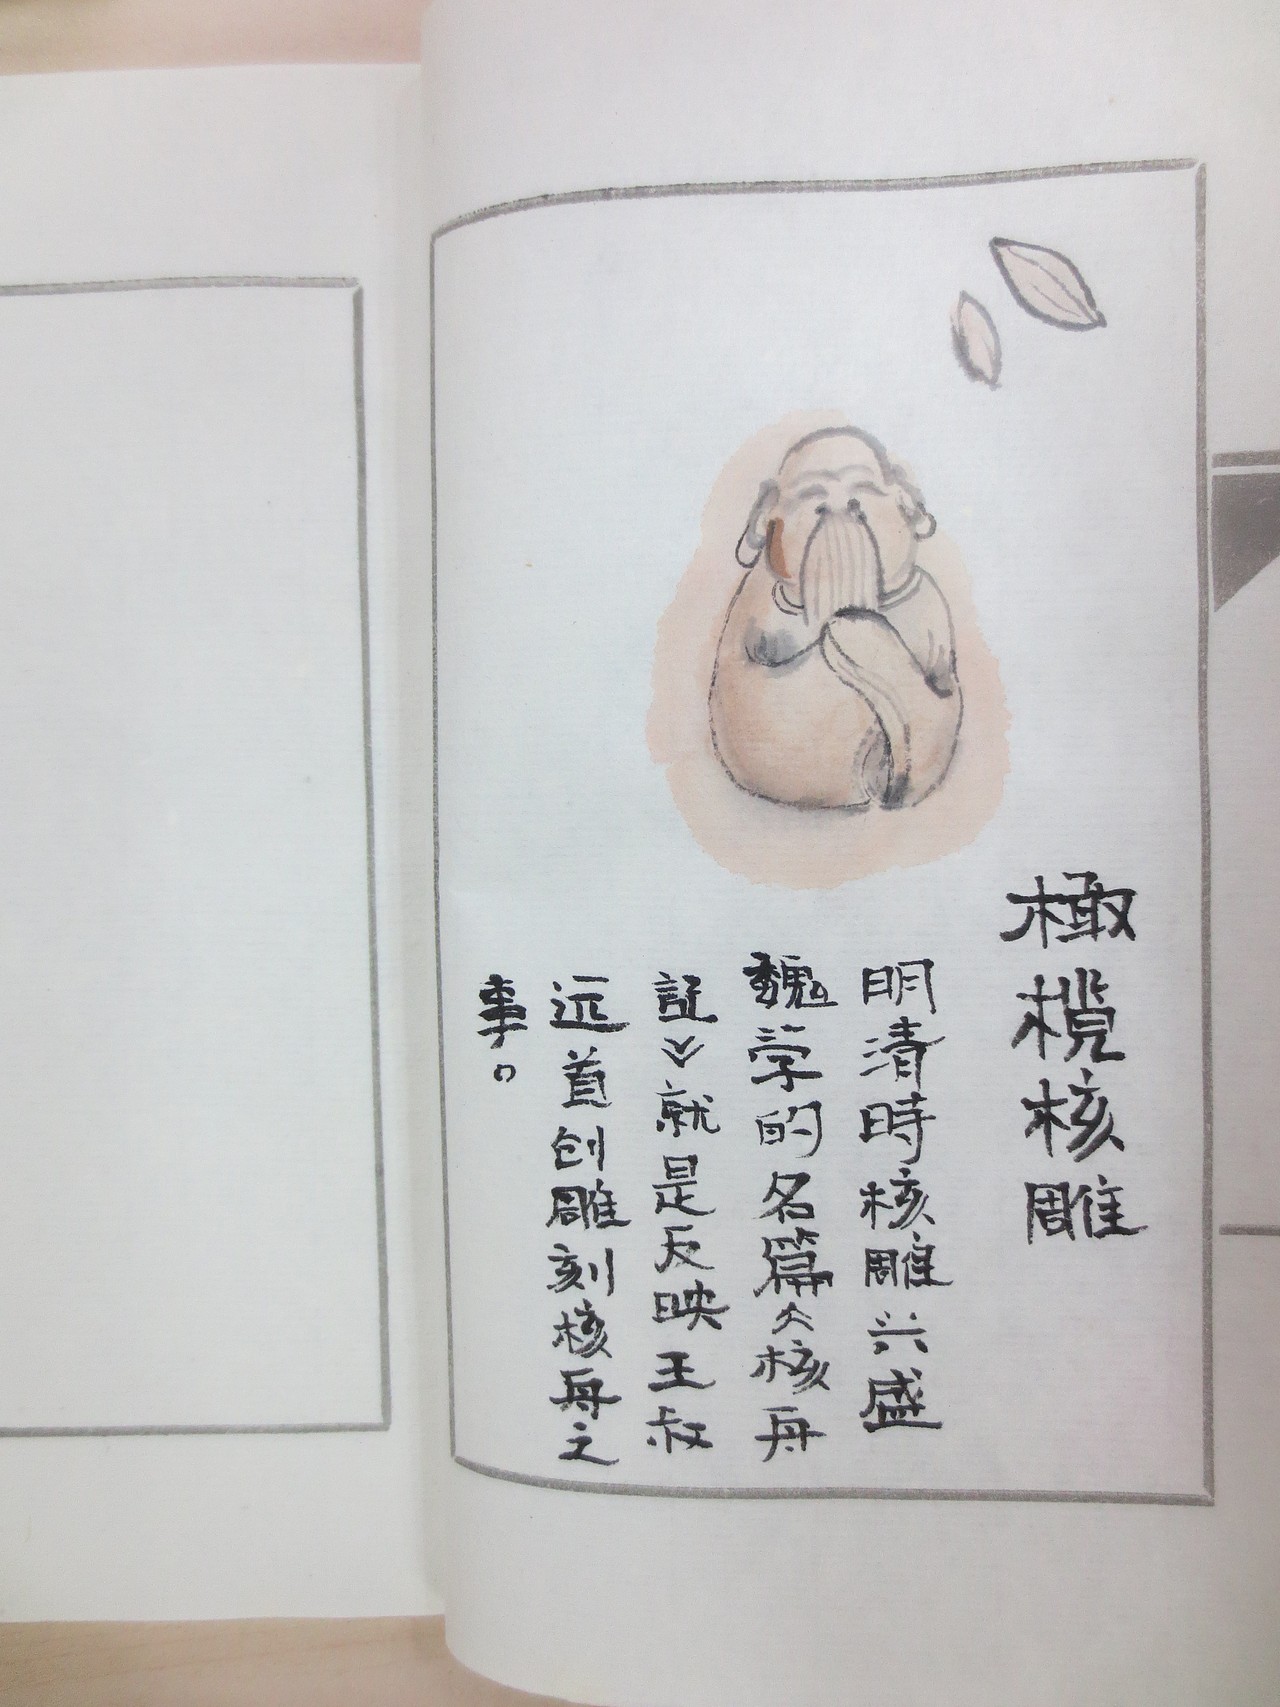 橄榄核雕
明清時核雕兴盛
魏学的名篇《核舟
記》就是反映王叔
远首创雕刻核舟之
事。